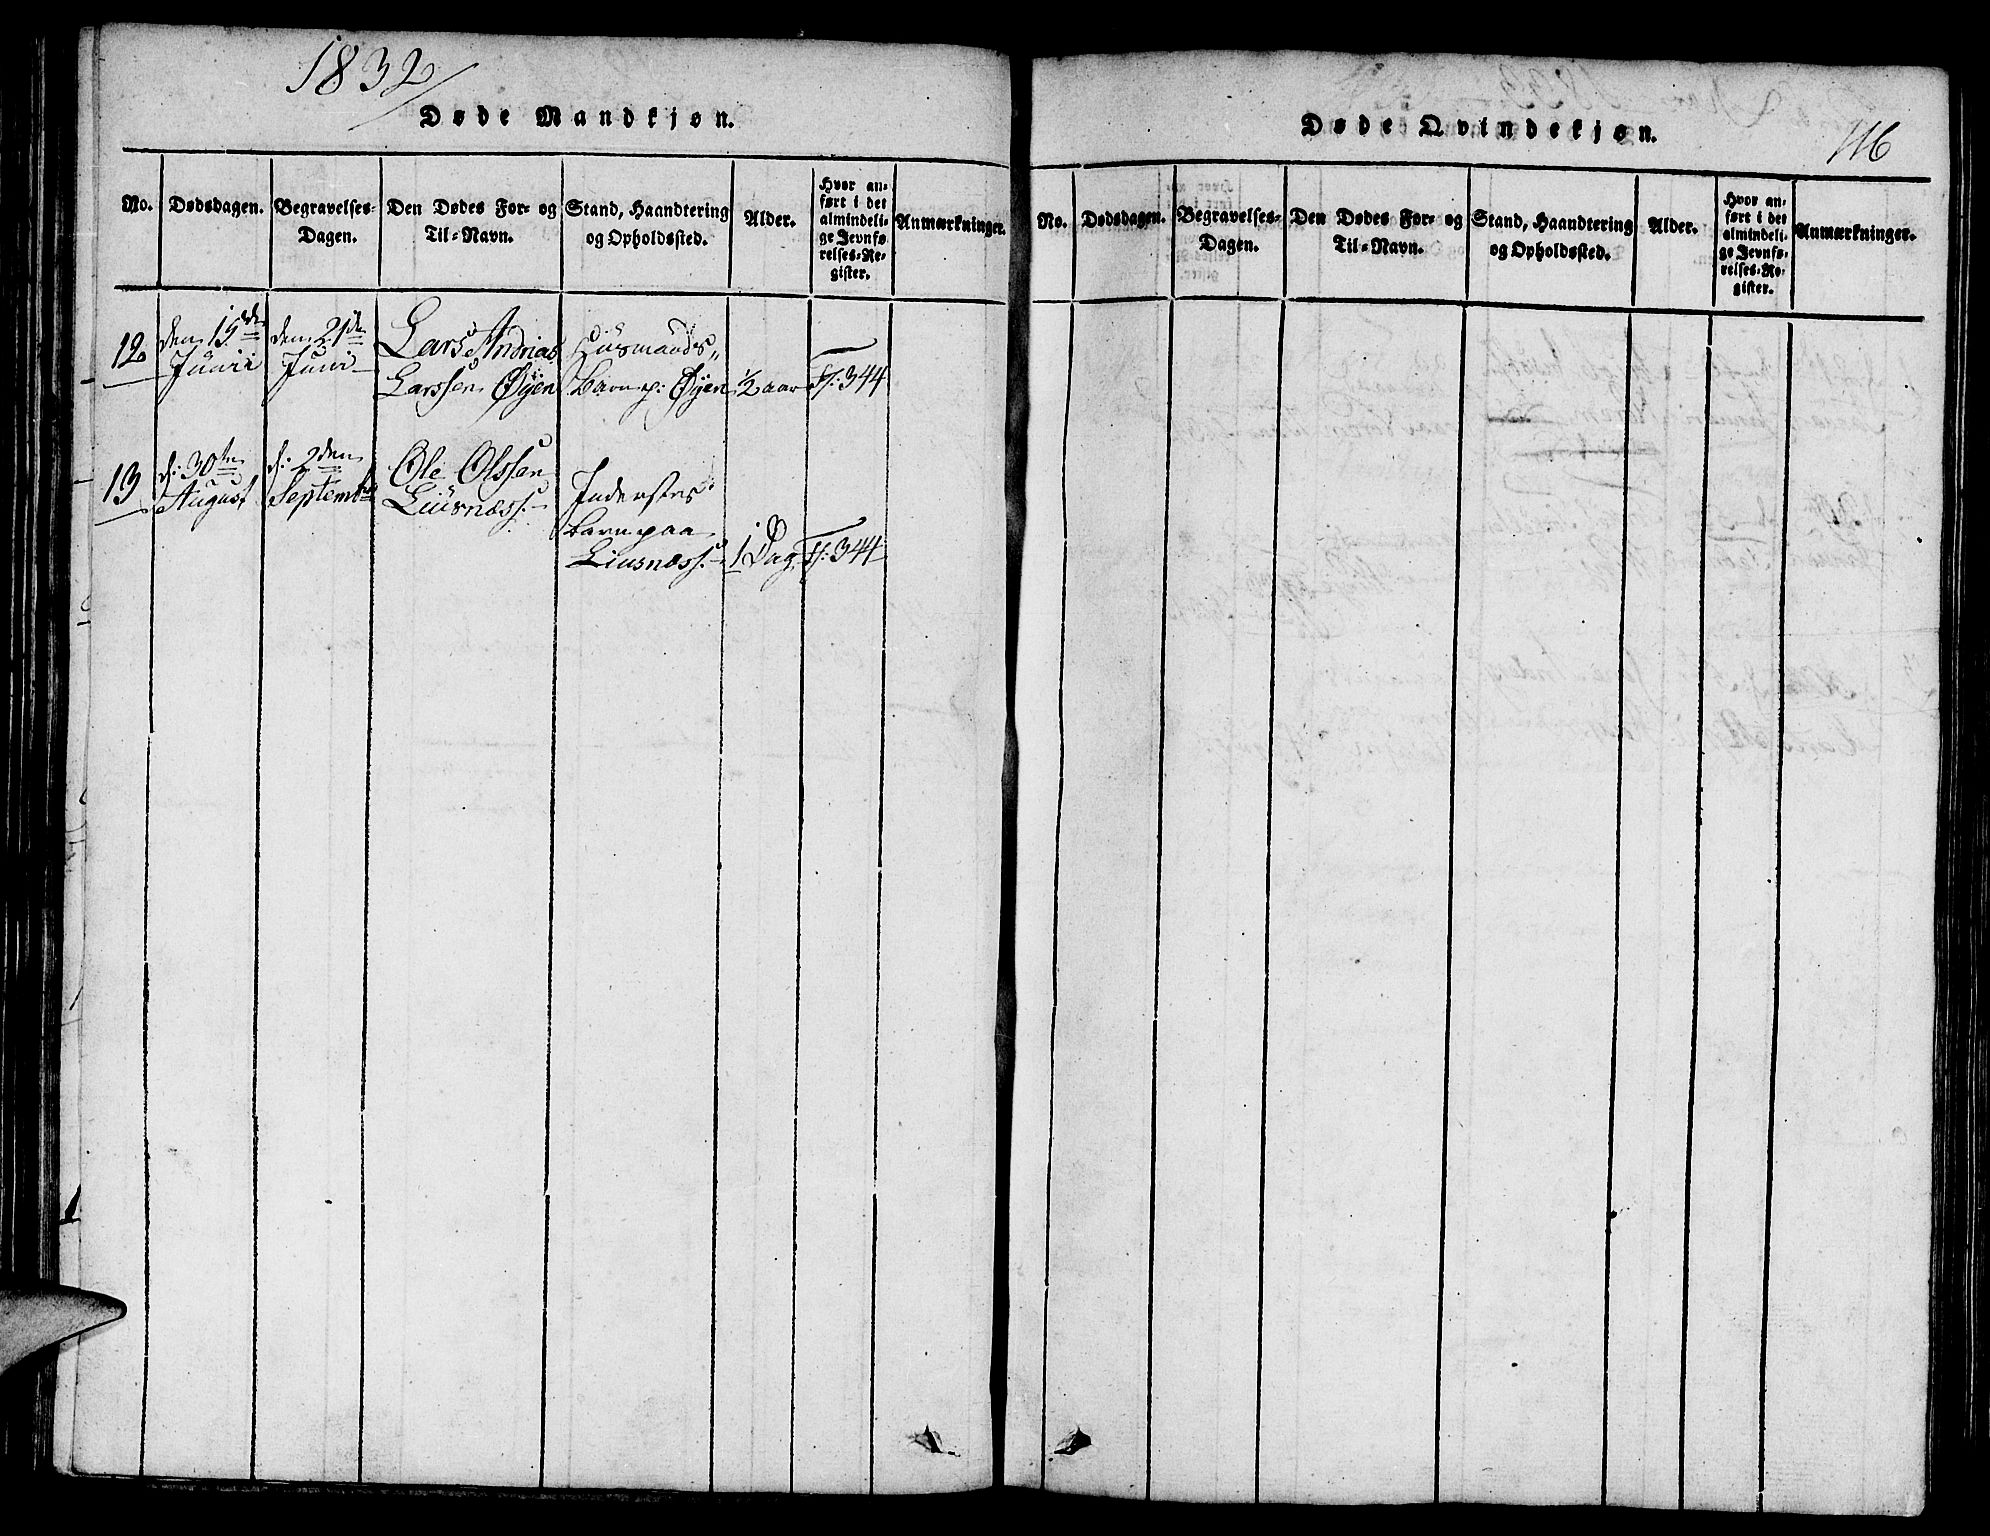 1832
Døde Mandkjøn.
No.
Dødsdagen.
Begravelses-
Dagen.
Den Dødes For- og
Til-Navn.
Stand, Haandtering
og Opholdssted.
Alder.
Hvor an-
ført i det
almindeli-
ge Jevnfø-
relses-Re-
gister.
Anmærkninger.
12
den 15de
Junii
den 21de
Juni
Lars Andrias
Larssen Øÿen
Huusmands„
barn p: Øÿen
1/2 aar
Fl: 344
13
d: 30te
August
d: 2den
Septemb
Ole Olssen
Liusnæss:
Inderstes
barn paa
Liusnæss:
1 Dag
Fl: 344
Døde Qvindekjøn.
116
No.
Dødsdagen.
Begravelses-
Dagen.
Den Dødes For- og
Til-Navn.
Stand, Haandtering
og Opholdssted.
Alder.
Hvor an-
ført i det
almindeli-
ge Jevnfø-
relses-Re-
gister.
Anmærkninger.